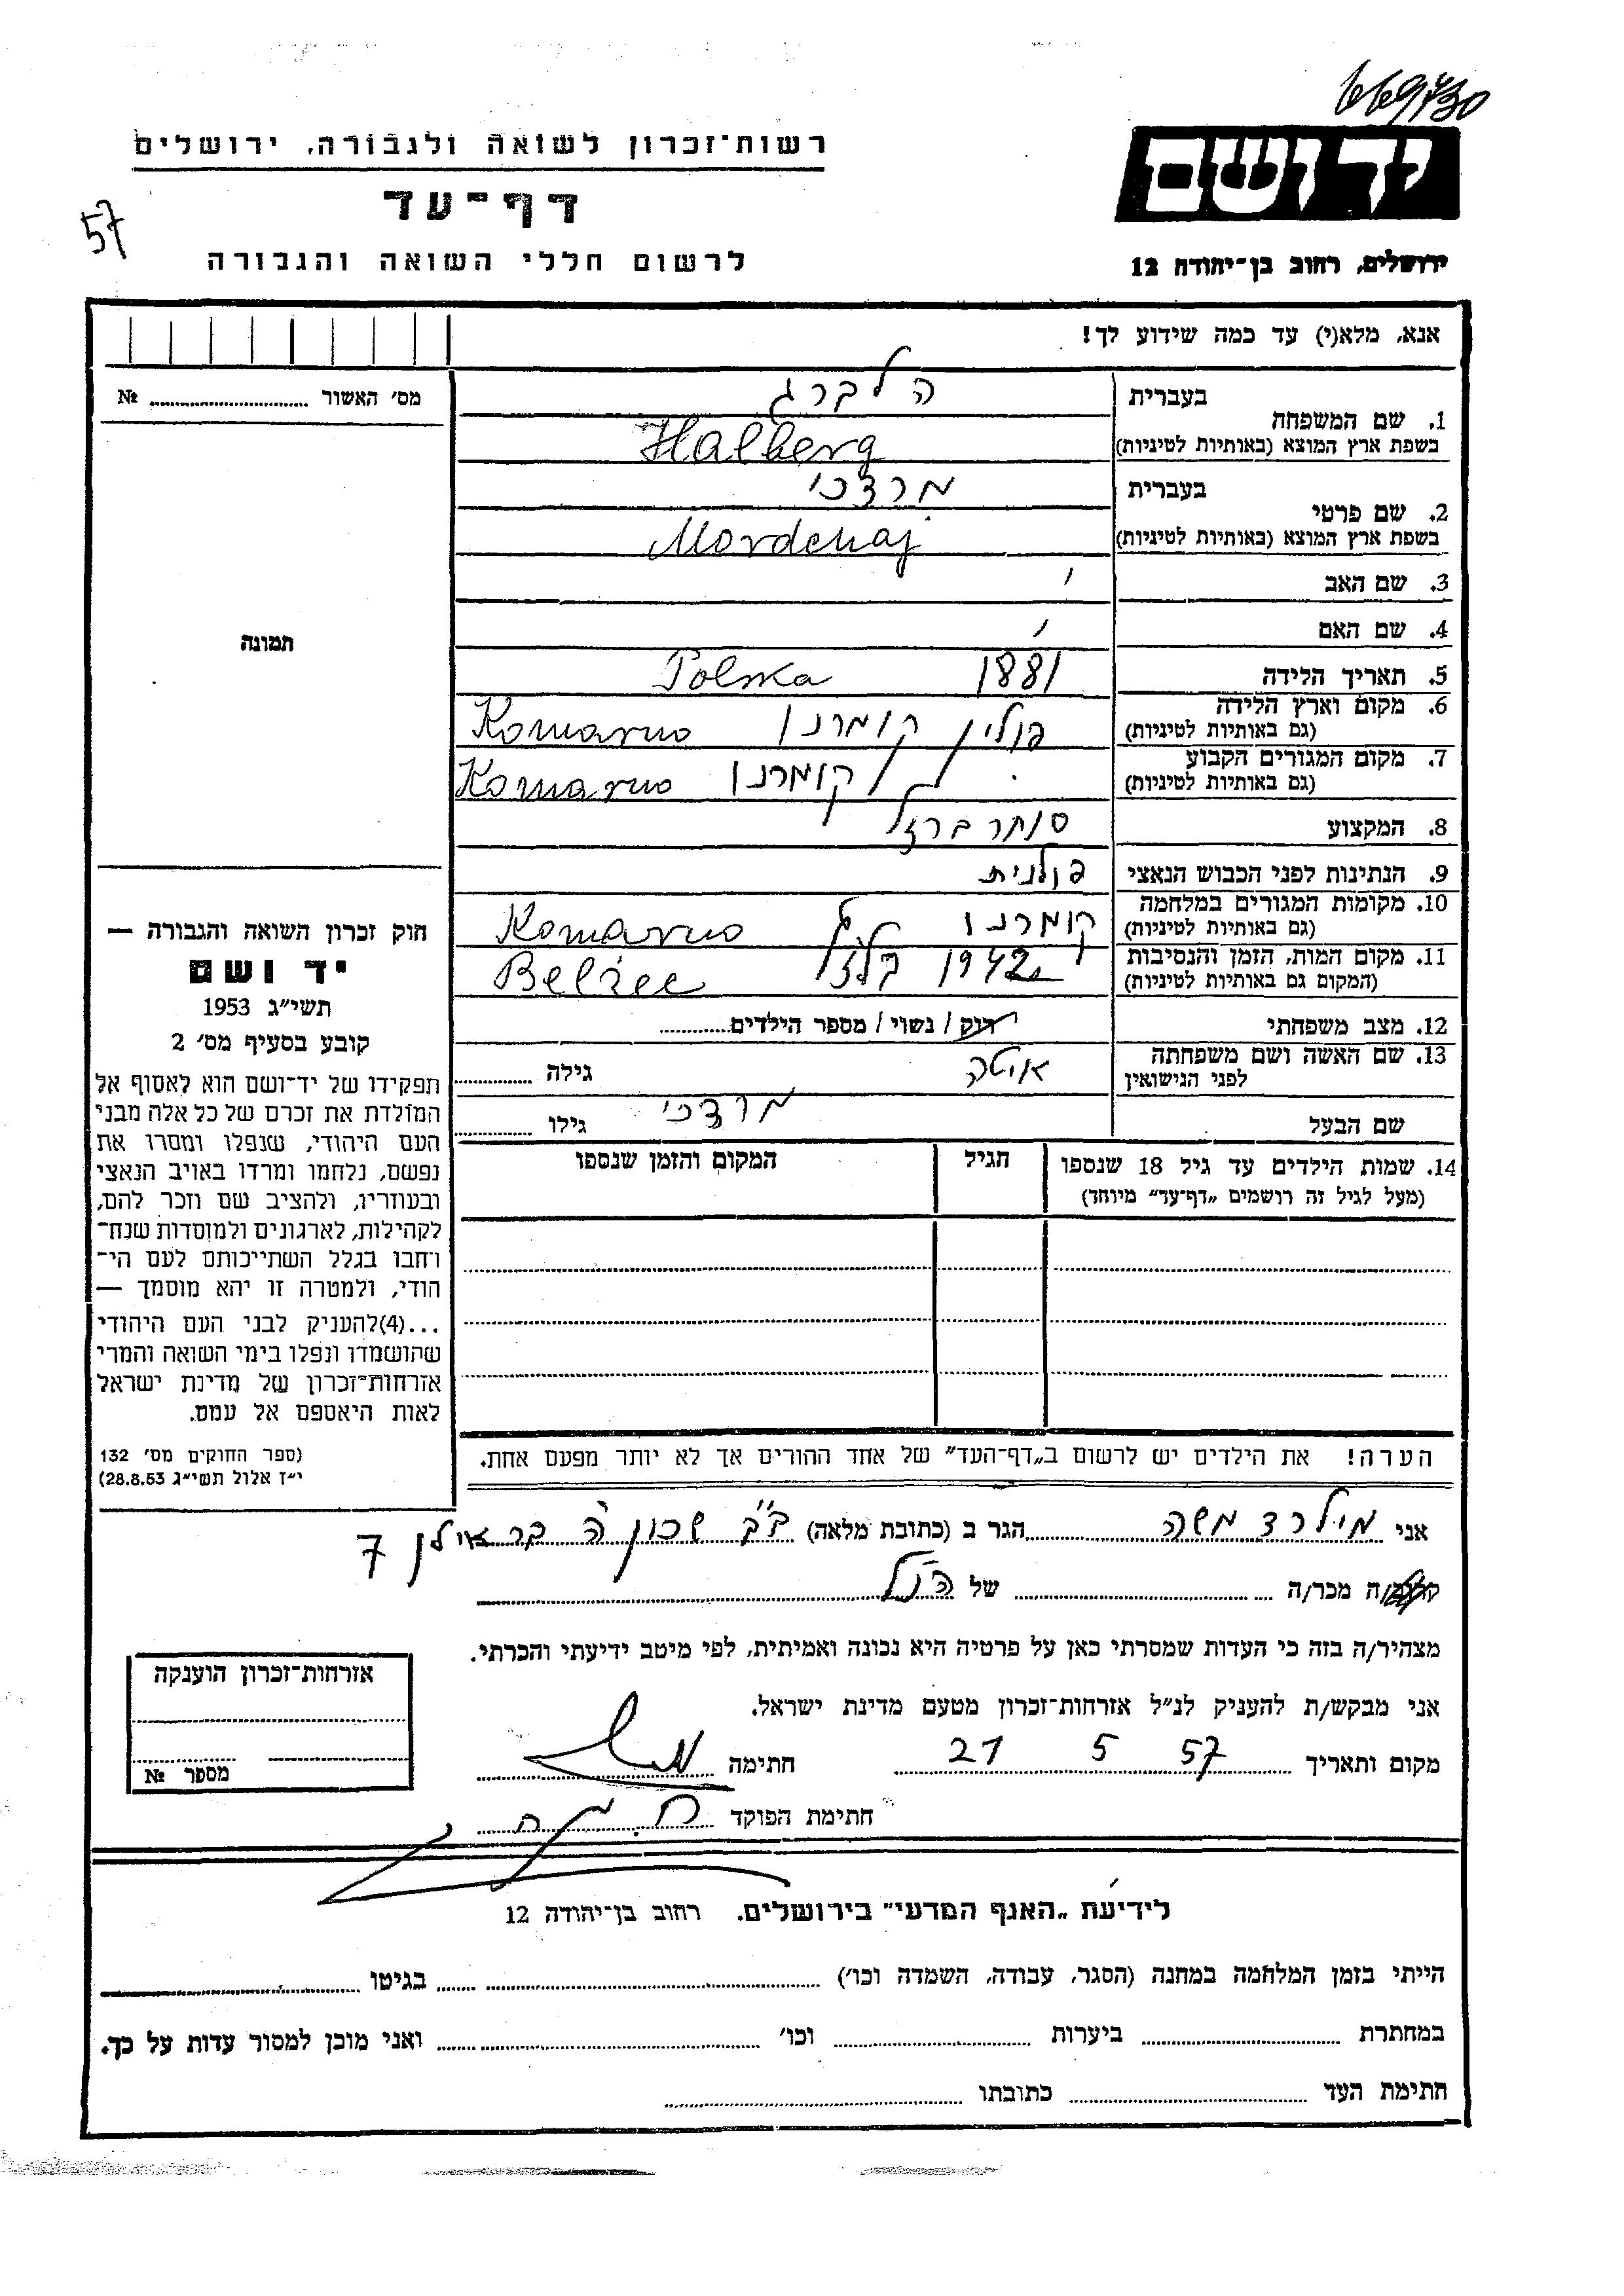 669430
רשות־זכרון לשואה ולגבורה, ירושלים
יד ושם
דף-עד
57
לרשום חללי השואה והגבורה
ירושלים, רחוב בן־יהודה 12
אנא, מלא(י) עד כמה שידוע לך!
מס׳ האשור № 
בעברית הלברג
1. שם המשפחה
בשפת ארץ המוצא (באותיות לטיניות) Halberg
בעברית מרדכי
2. שם פרטי
בשפת ארץ המוצא (באותיות לטיניות) Mordchaj
3. שם האב
4. שם האם
תמונה
5. תאריך הלידה 1881 Polska
6. מקום וארץ הלידה
(גם באותיות לטיניות) פולין קומרנו Komarno
7. מקום המגורים הקבוע
(גם באותיות לטיניות) קומרנו Komarno
8. המקצוע סוחר ברזל
9. הנתינות לפני הכבוש הנאצי פולנית
10. מקומות המגורים במלחמה
(גם באותיות לטיניות) קומרנו Komarno
11. מקום המות, הזמן והנסיבות
(המקום גם באותיות לטיניות) 1942 Belżec
12. מצב משפחתי רוק / נשוי / מספר הילדים
13. שם האשה ושם משפחתה
לפני הנישואין אוטה גילה
שם הבעל מרדכי גילו
14. שמות הילדים עד גיל 18 שנספו
(מעל לגיל זה רושמים „דף־עד” מיוחד)
הגיל
המקום והזמן שנספו
הערה! את הילדים יש לרשום ב„דף־העד” של אחד ההורים אך לא יותר מפעם אחת.
חוק זכרון השואה והגבורה —
יד ושם
תשי״ג 1953
קובע בסעיף מס׳ 2
תפקידו של יד־ושם הוא לאסוף אל
המולדת את זכרם של כל אלה מבני
העם היהודי, שנפלו ומסרו את
נפשם, נלחמו ומרדו באויב הנאצי
ובעוזריו, ולהציב שם וזכר להם,
לקהילות, לארגונים ולמוסדות שנח־
רחבו בגלל השתייכותם לעם הי־
הודי, ולמטרה זו יהא מוסמך —
...(4)להעניק לבני העם היהודי
שהושמדו ונפלו בימי השואה והמרי
אזרחות־זכרון של מדינת ישראל
לאות היאספם אל עמם.
(ספר החוקים מס׳ 132
י״ז אלול תשי״ג 28.8.53)
אני מילרד משה הגר ב (כתובת מלאה) ב״ב שכון ה 7
ה מכר/ה של הנ״ל
מצהיר/ה בזה כי העדות שמסרתי כאן על פרטיה היא נכונה ואמיתית, לפי מיטב ידיעתי והכרתי.
אני מבקש/ת להעניק לנ״ל אזרחות־זכרון מטעם מדינת ישראל.
מקום ותאריך 57 5 21 חתימה
חתימת הפוקד
אזרחות־זכרון הוענקה
מספר №
לידיעת „האגף המדעי” בירושלים. רחוב בן־יהודה 12
הייתי בזמן המלחמה במחנה (הסגר, עבודה, השמדה וכו׳) בגיטו
במחתרת ביערות וכו׳ ואני מוכן למסור עדות על כך.
חתימת העד כתובתו